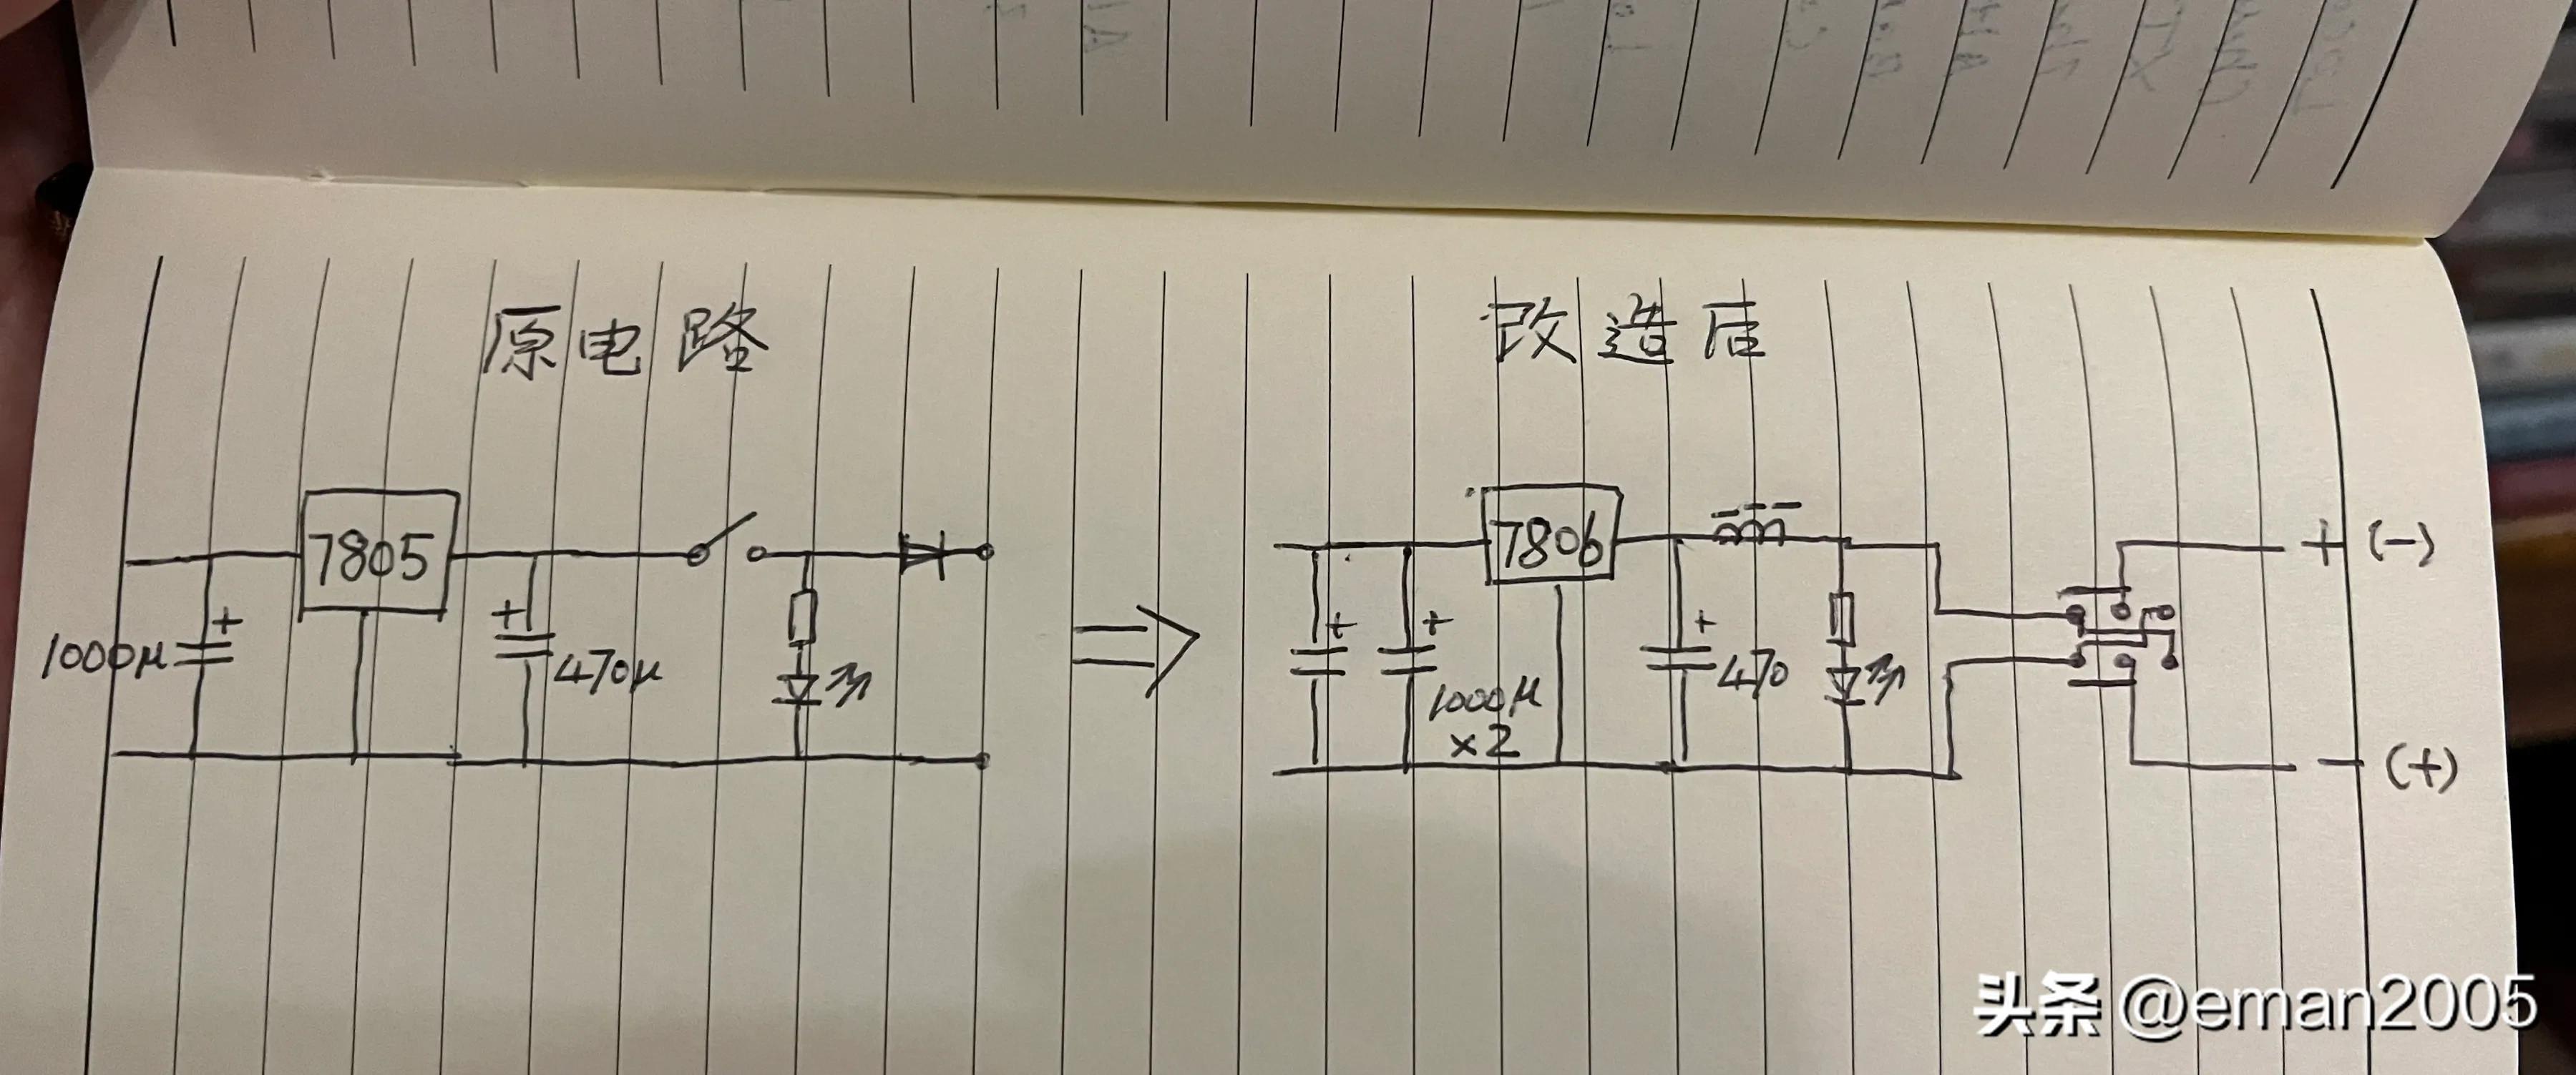 原电路
改造后
7805
+
1000μ
+
470μ
7806
+
+
1000μ
×2
+
470
+ (-)
- (+)
头条 @eman2005